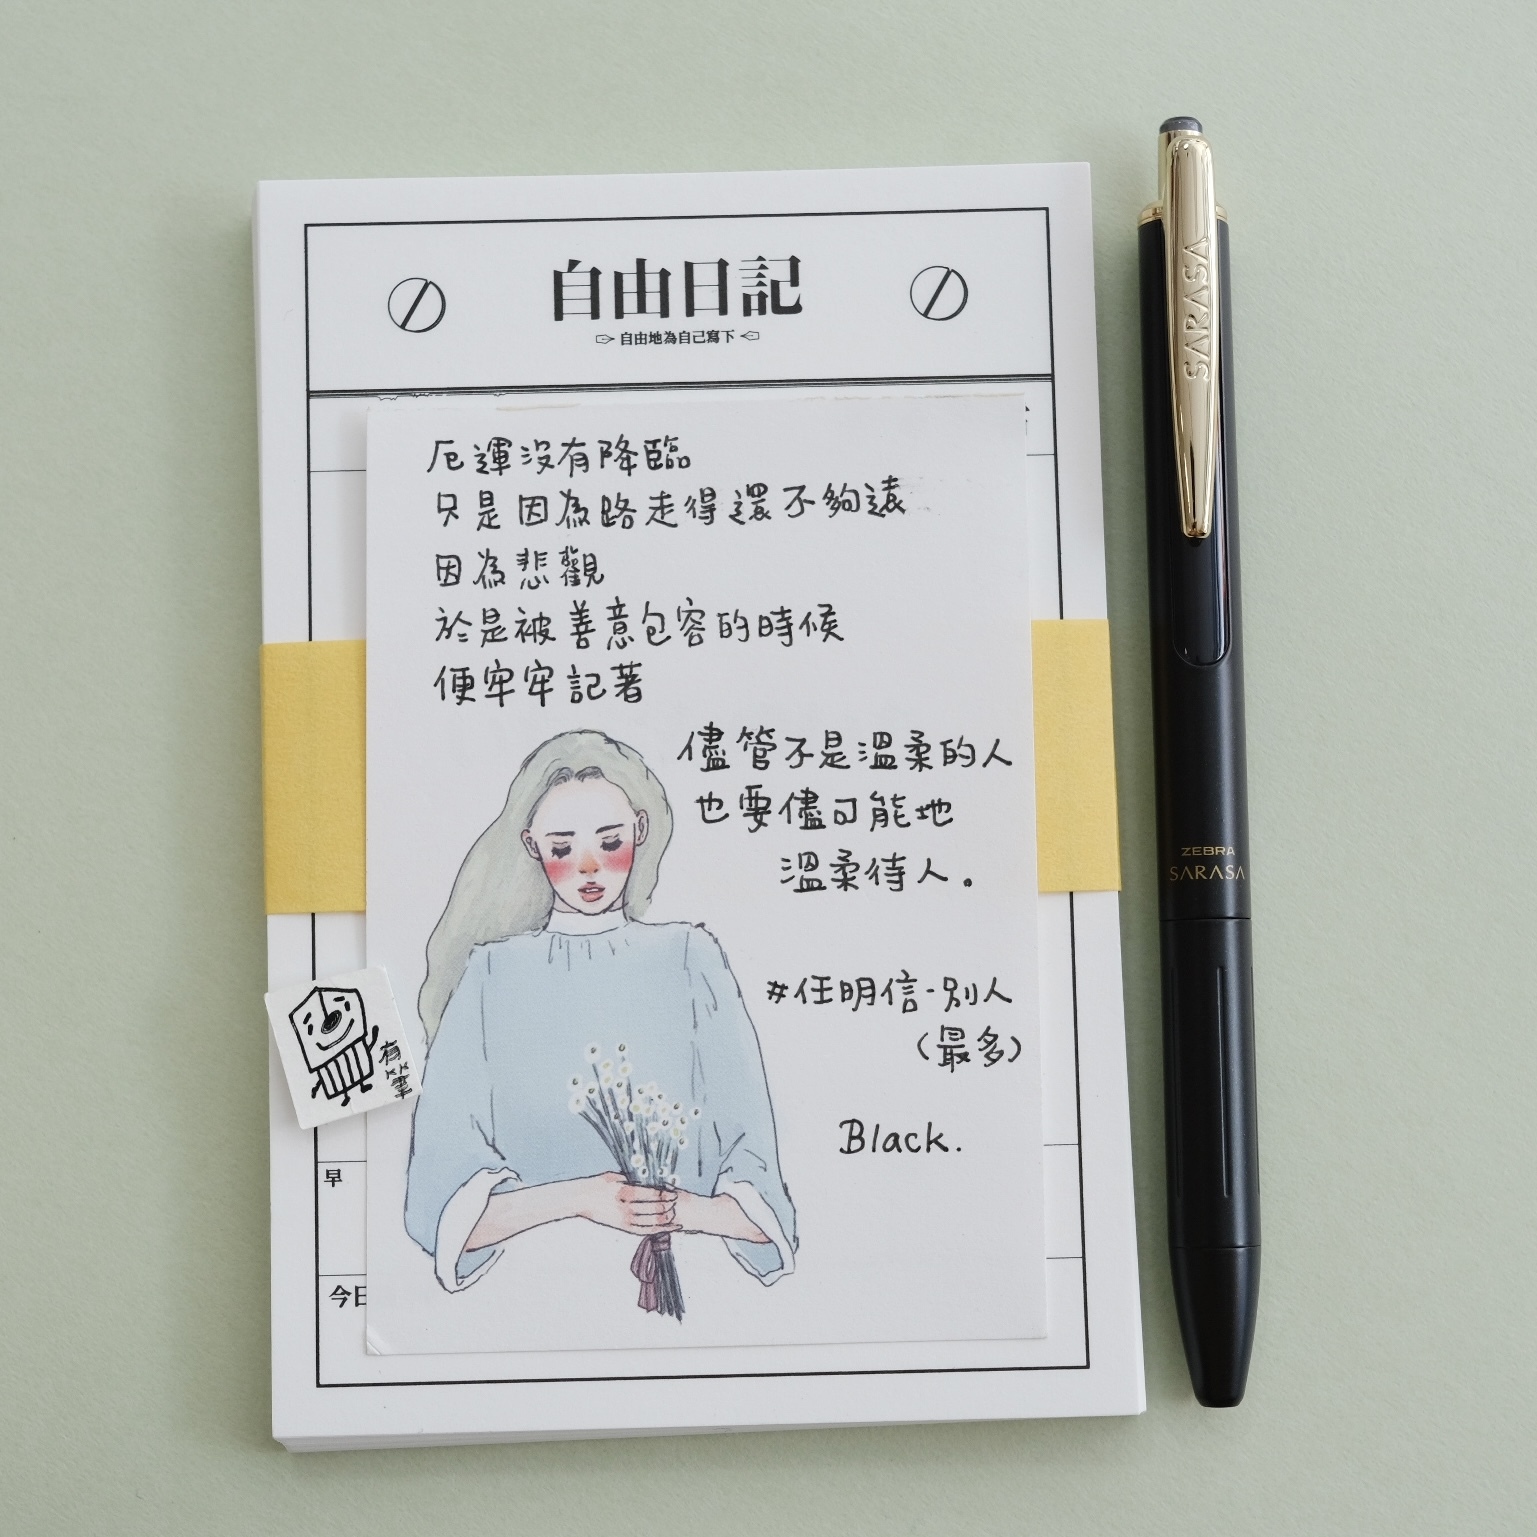 自由日記
自由地為自己寫下
厄運沒有降臨
只是因為路走得還不夠遠
因為悲觀
於是被善意包容的時候
便牢牢記著
儘管不是溫柔的人
也要儘可能地
溫柔待人。
#任明信-別人
(最多)
Black.
有筆
早
今日
SARASA
ZEBRA
SARASA